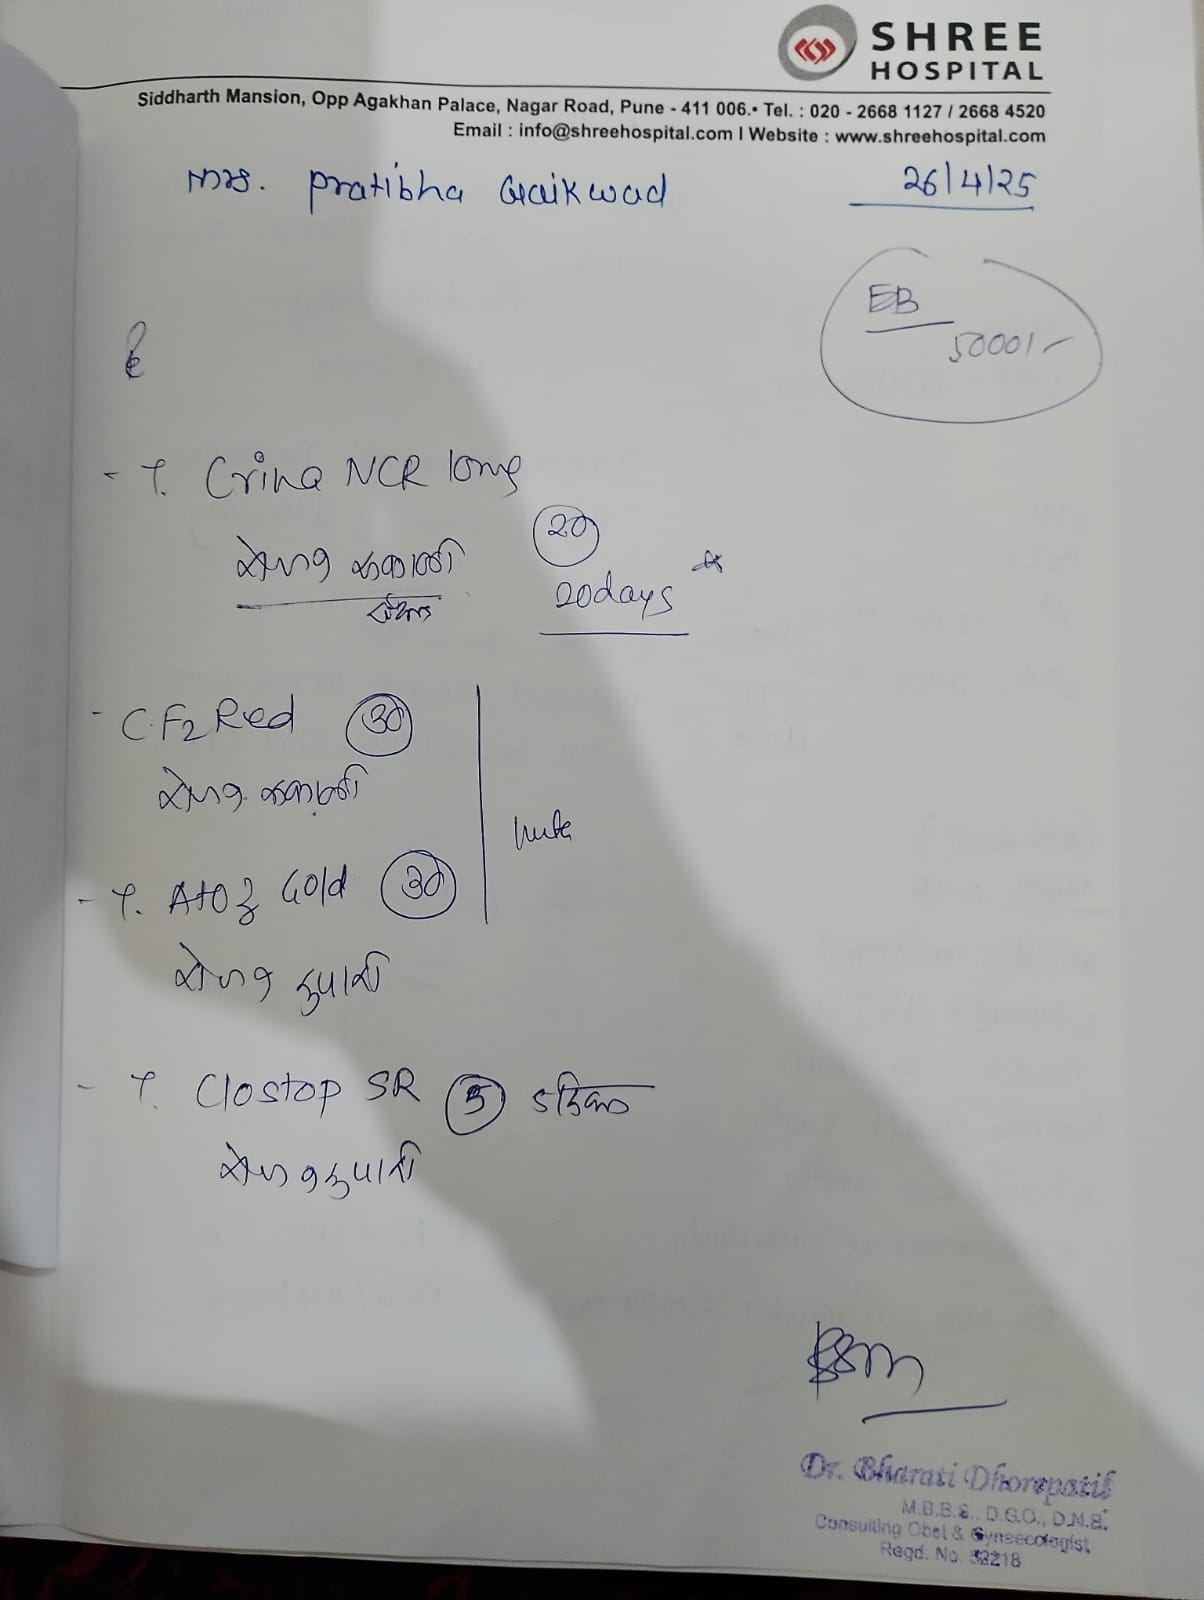 SHREE
HOSPITAL
Siddharth Mansion, Opp Agakhan Palace, Nagar Road, Pune - 411 006.• Tel. : 020 - 2668 1127 / 2668 4520
Email : info@shreehospital.com I Website : www.shreehospital.com
Mrs. Pratibha Gaikwad 26/4/25
EB
5000/-
- T. Crina NCR long
रोज १ सकाळी 20
20 days
- C. F2 Red 30
रोज १ सकाळी
- T. A to Z Gold 30
रोज १ दुपारी
- T. Clostop SR 5 ५ दिवस
रोज १ दुपारी
Dr. Bharati Dhorepatil
M.B.B.S., D.G.O., D.N.B.
Consulting Obst & Gynaecologist
Regd. No. 52218